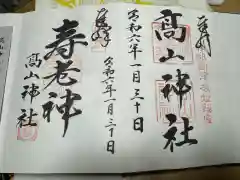 奉拝
高山神社
令和六年一月三十日
奉拝
令和六年一月三十日
寿老神
高山神社